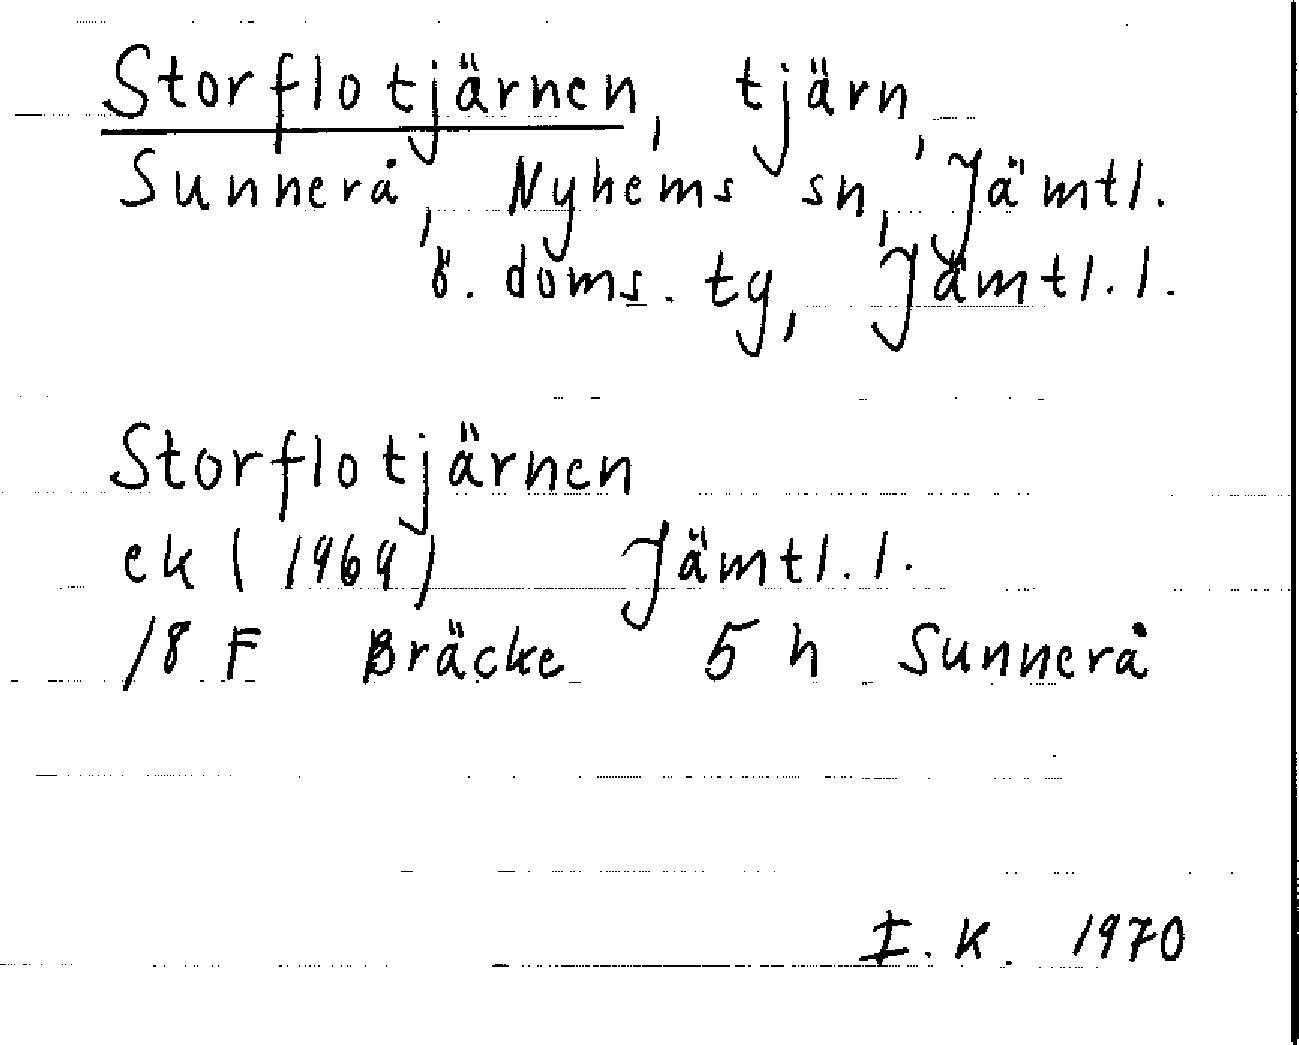 Storflotjärnen, tjärn,
Sunnerå, Nyhems sn, Jämtl.
ö. doms. tg, Jämtl. l.
Storflotjärnen
ek (1969) Jämtl. l.
18 F Bräcke 5 h Sunnerå
I. K. 1970